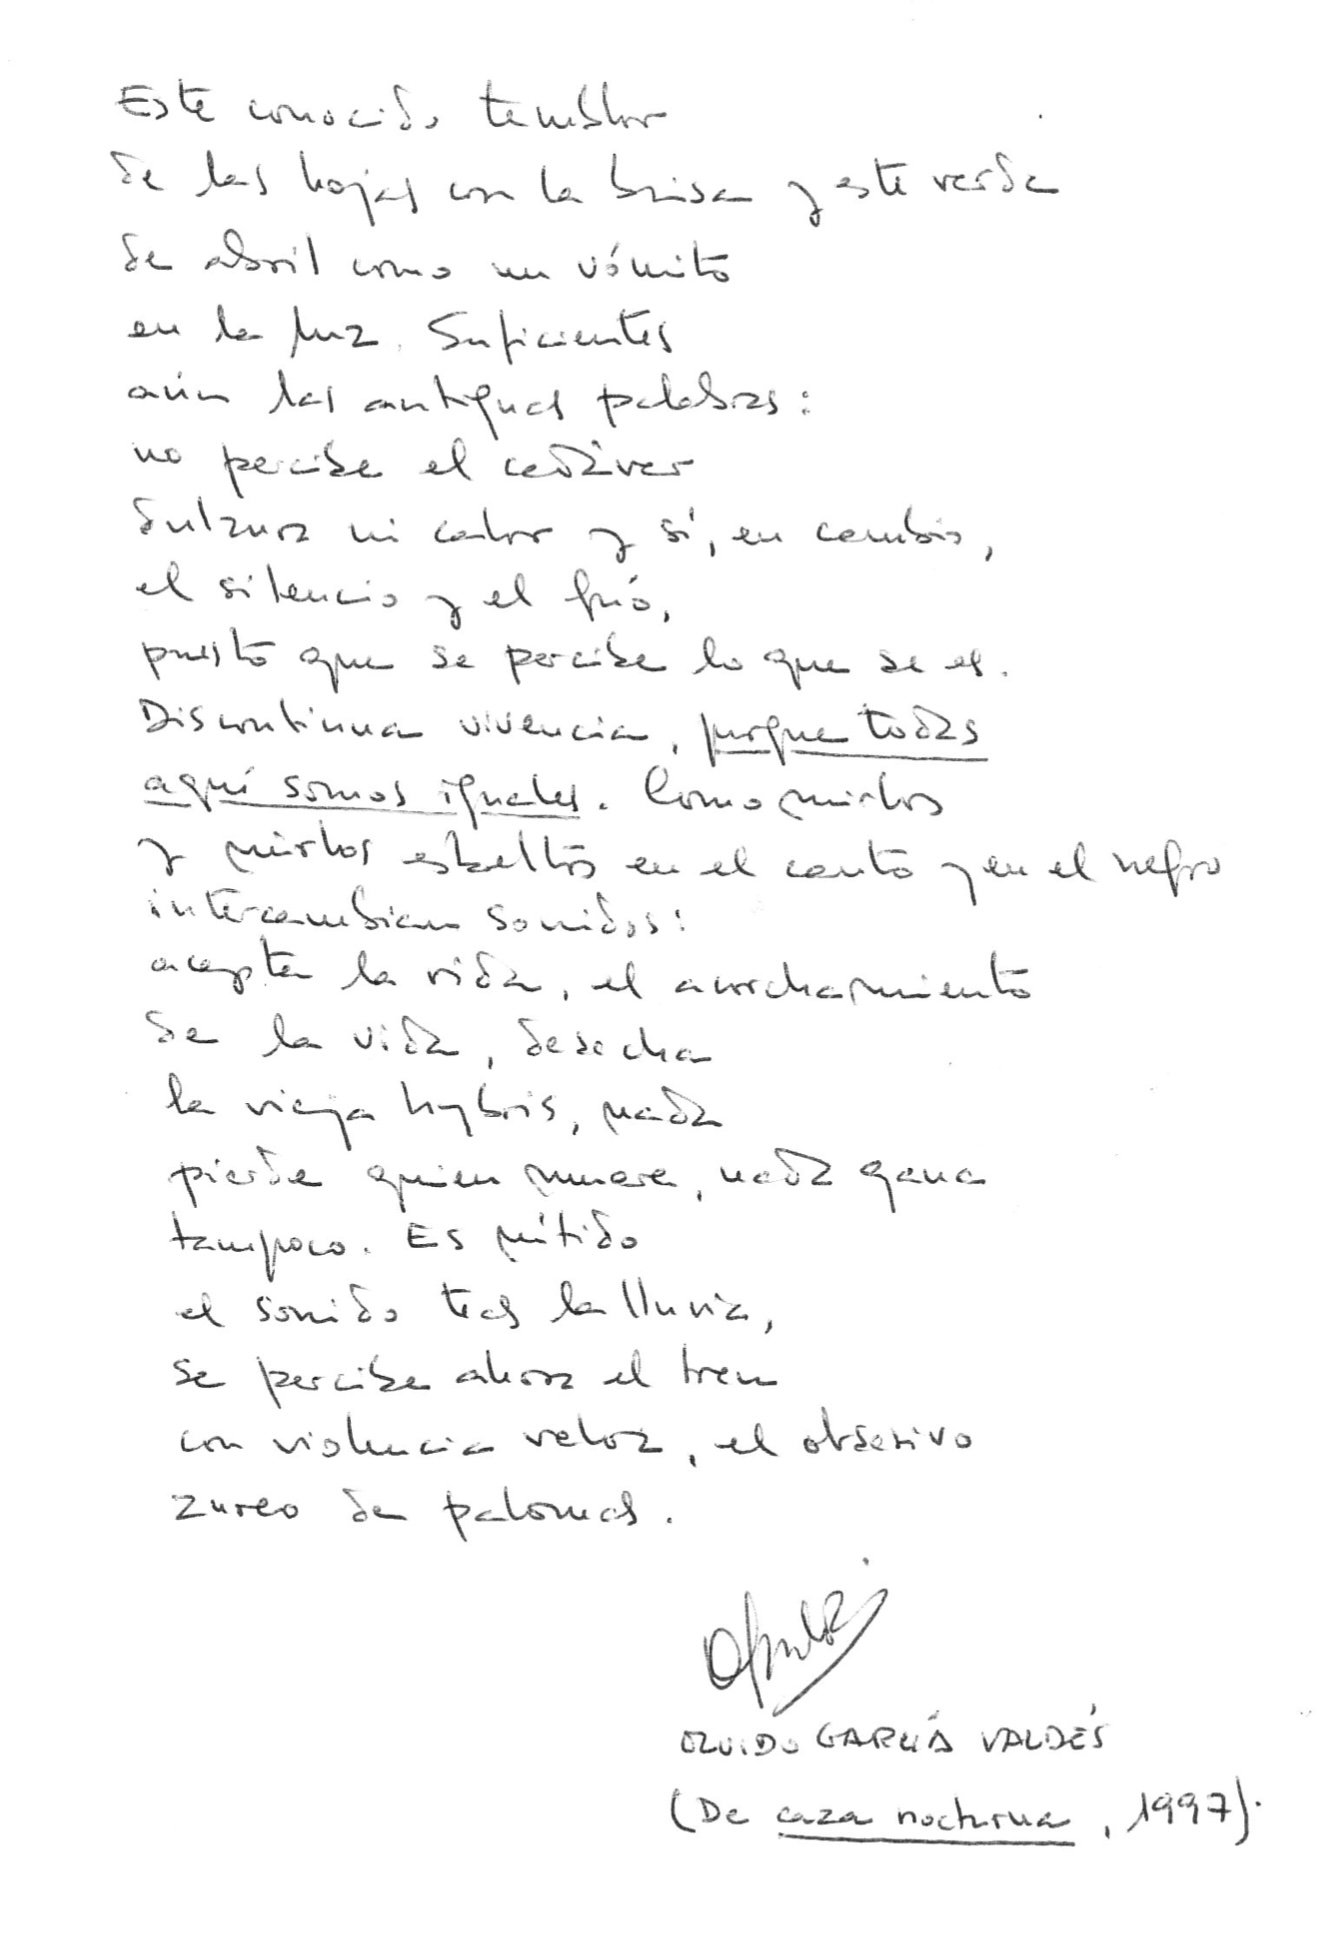 Este conocido temblor
de las hojas con la brisa y este verde
de abril como un vómito
en la luz. Suficientes
aún las antiguas palabras:
no percibe el cadáver
dulzura ni calor y sí, en cambio,
el silencio y el frío,
puesto que se percibe lo que se es.
Discontinua vivencia, porque todas
aquí somos iguales. Como mirlos
y mirlos esbeltos en el canto y en el negro
intercambian sonidos:
acepta la vida, el acorchamiento
de la vida, desecha
la vieja hybris, nada
pierde quien muere, nada gana
tampoco. Es nítido
el sonido tras la lluvia,
se percibe ahora el tren
con violencia veloz, el obsesivo
zureo de palomas.
OLVIDO GARCÍA VALDÉS
(De caza nocturna, 1997).